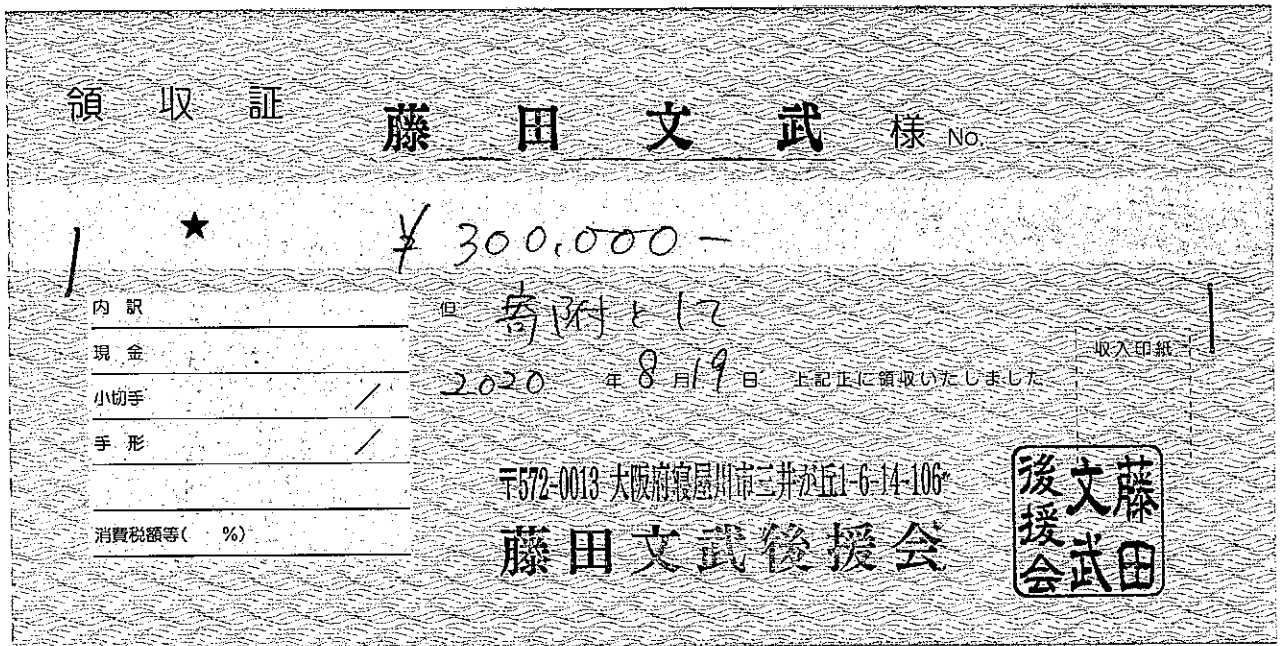 領収証 藤田文武 様 No.
★ ¥300,000-
内訳
現金
小切手 /
手形 /
消費税額等( %)
但 寄附として
2020年8月19日 上記正に領収いたしました
収入印紙
〒572-0013 大阪府寝屋川市三井が丘1-6-14-106
藤田文武後援会
藤田
文武
後援会